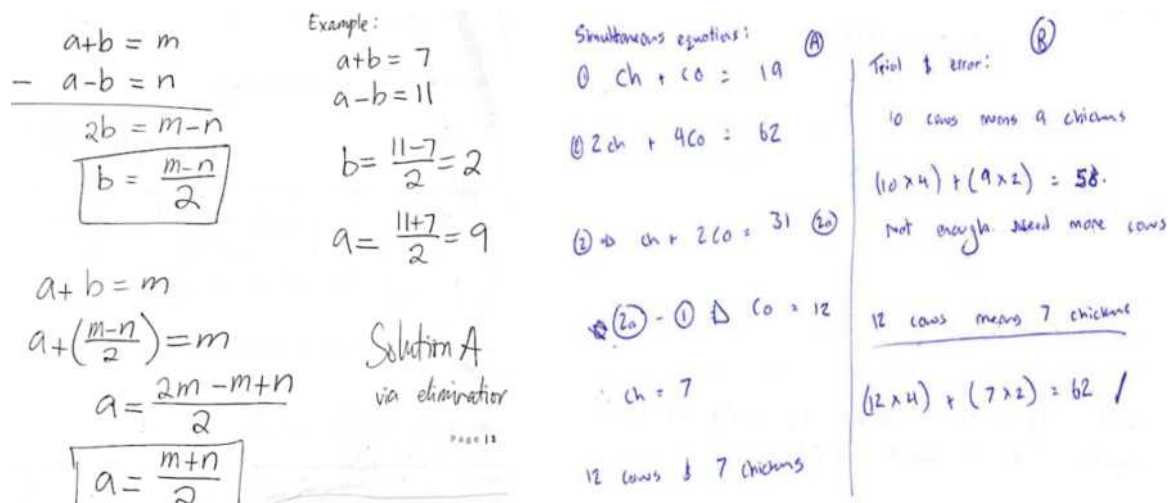 a+b = m
− a-b = n
2b = m-n
b = m-n/2
a+b = m
a+(m-n/2) = m
a = 2m-m+n/2
a = m+n/2
Example:
a+b = 7
a-b = 11
b = 11-7/2 = 2
a = 11+7/2 = 9
Solution A
via elimination
Page | 1
Simultaneous equations: Ⓐ
① Ch + Co = 19
② 2ch + 4Co = 62
② ⇒ ch + 2Co = 31 ②a
②a - ① ⇒ Co = 12
∴ ch = 7
12 cows & 7 chickens
Ⓑ
Trial & error:
10 cows means 9 chickens
(10 x 4) + (9 x 2) = 58.
Not enough. need more cows
12 cows means 7 chickens
(12 x 4) + (7 x 2) = 62 /